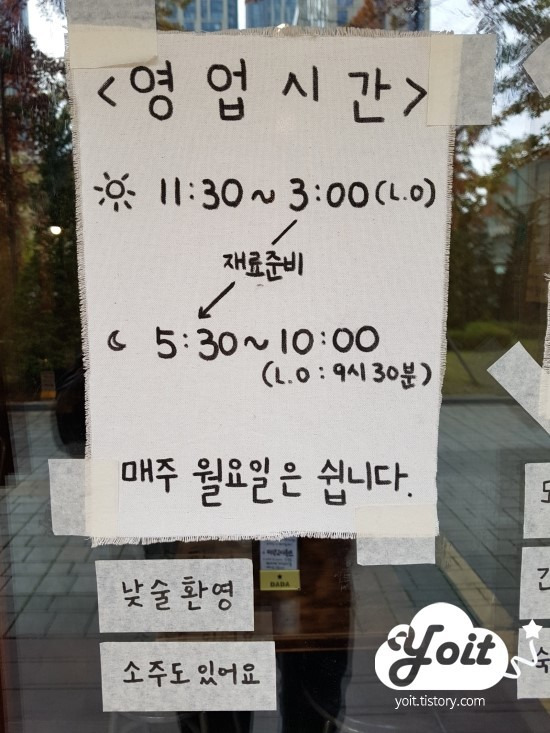 <영업시간>
11:30~3:00(L.O)
재료준비
5:30~10:00
(L.O:9시30분)
매주 월요일은 쉽니다.
BABA
낮술환영
소주도있어요
Yoit
yoit.tistory.com